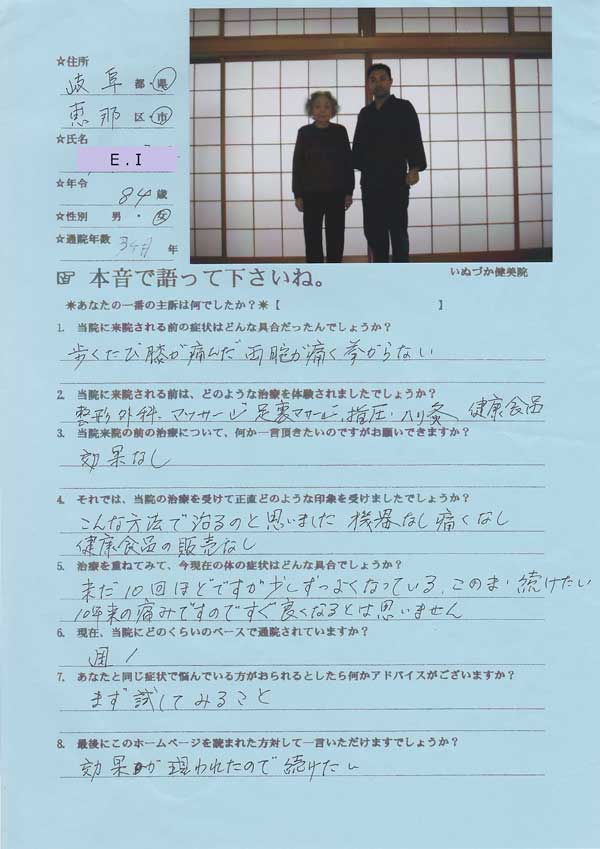 ☆住所
岐阜 都・県
恵那 区・市
☆氏名
E.I
☆年令 84 歳
☆性別 男・女
☆通院年数 3ヶ月 年
☞ 本音で語って下さいね。 いぬづか健美院
＊あなたの一番の主訴は何でしたか？＊【 】
1. 当院に来院される前の症状はどんな具合だったんでしょうか？
歩くたび膝が痛んだ 両腕が痛く挙がらない
2. 当院に来院される前は、どのような治療を体験されましたでしょうか？
整形外科、マッサージ、足裏マサージ、指圧、ハリ灸、健康食品
3. 当院来院の前の治療について、何か一言頂きたいのですがお願いできますか？
効果なし
4. それでは、当院の治療を受けて正直どのような印象を受けましたでしょうか？
こんな方法で治るのと思いました 機器なし 痛くなし
健康食品の販売なし
5. 治療を重ねてみて、今現在の体の症状はどんな具合でしょうか？
未だ10回ほどですが少しずつよくなっている、このまゝ続けたい
10年来の痛みですのですぐ良くなるとは思いません
6. 現在、当院にどのくらいのペースで通院されていますか？
週1
7. あなたと同じ症状で悩んでいる方がおられるとしたら何かアドバイスがございますか？
まず試してみること
8. 最後にこのホームページを読まれた方対して一言いただけますでしょうか？
効果が現われたので続けたい